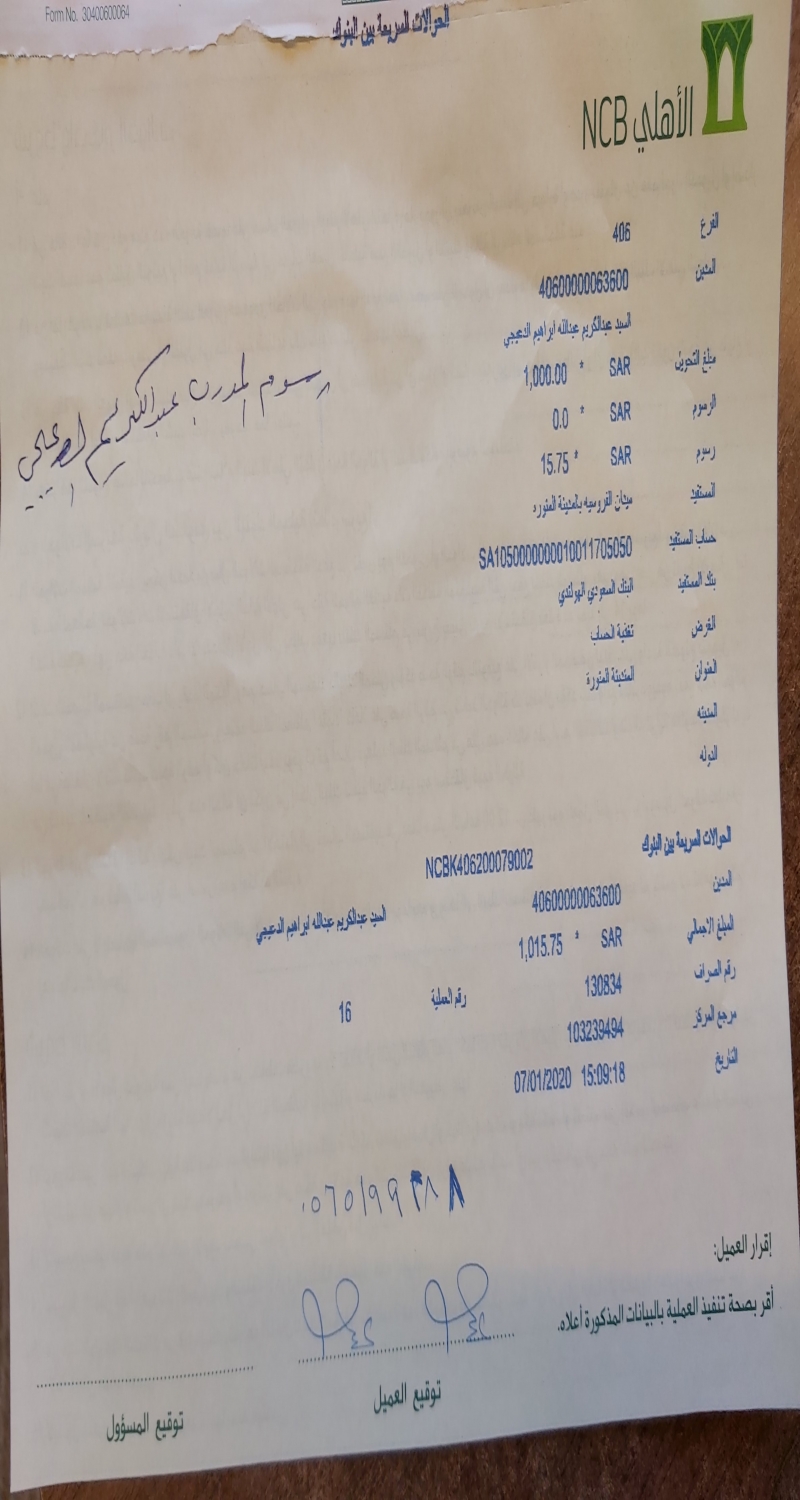 Form No. 30400600064
الحوالات السريعة بين البنوك
الأهلي NCB
الفرع 406
المدين 40600000063600
السيد عبدالكريم عبدالله ابراهيم الدعيجي
مبلغ التحويل SAR * 1,000.00
الرسوم SAR * 0.0
رسوم SAR * 15.75
المستفيد ميدان الفروسيه بالمدينة المنوره
حساب المستفيد SA1050000000010011705050
بنك المستفيد البنك السعودي الهولندي
الغرض تغذية الحساب
العنوان المدينة المنورة
المدينه
الدوله
رسوم المدرب عبدالكريم الدعيجي
الحوالات السريعة بين البنوك NCBK406200079002
المدين 40600000063600 السيد عبدالكريم عبدالله ابراهيم الدعيجي
المبلغ الاجمالي SAR * 1,015.75
رقم الصراف 130834 رقم العملية 16
مرجع المركز 103239494
التاريخ 07/01/2020 15:09:18
إقرار العميل:
أقر بصحة تنفيذ العملية بالبيانات المذكورة أعلاه.
توقيع العميل
توقيع المسؤول